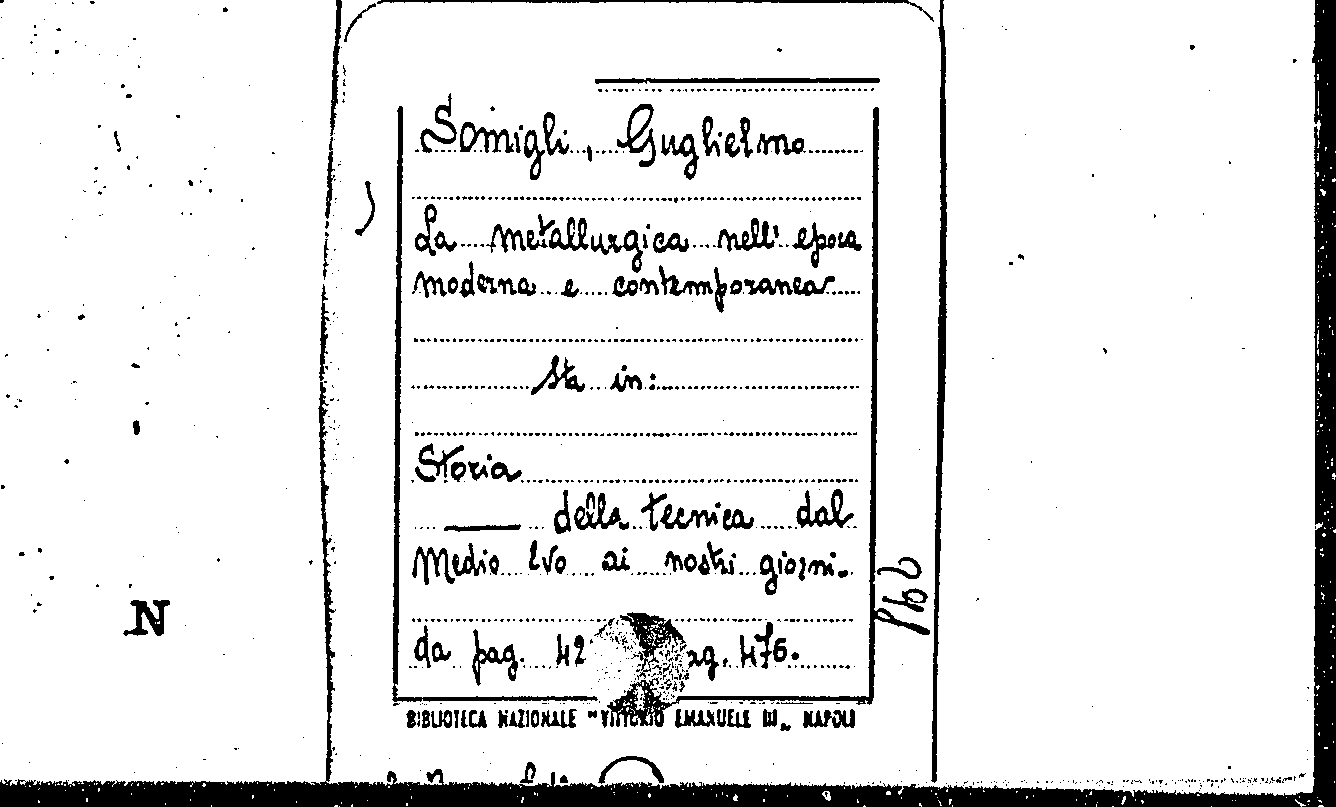 Somigli, Guglielmo
La metallurgica nell' epoca
moderna e contemporanea
Sta in:
Storia
della tecnica dal
Medio Evo ai nostri giorni.
da pag. 42 pag. 476.
BIBLIOTECA NAZIONALE "VITTORIO EMANUELE III„ NAPOLI
N